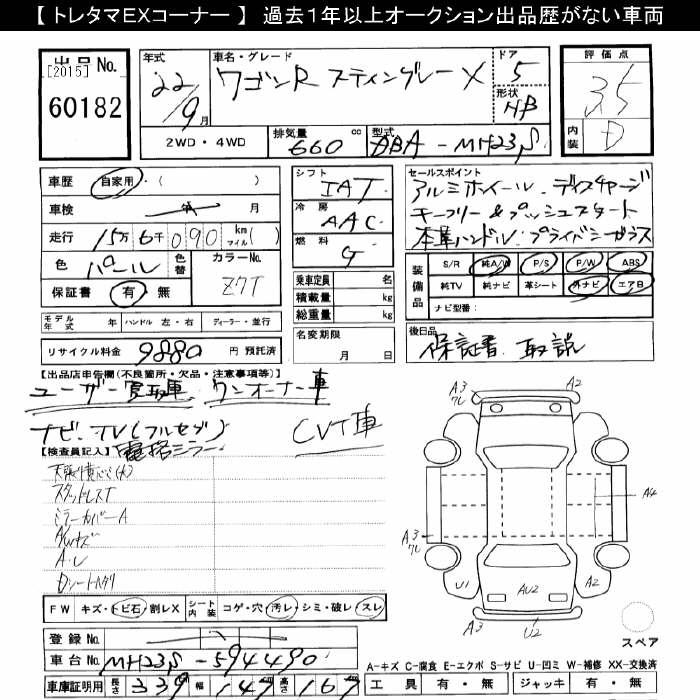 【 トレタマEXコーナー 】 過去1年以上オークション出品歴がない車両
出品No.
[2015]
60182
年式
22/9月
車名・グレード
ワゴンR スティングレー X
ドア
5
形状
HB
評価点
3.5
内装
D
2WD・4WD
排気量
660 cc
型式
DBA-MH23S
車歴 自家用・( )
車検 年 月
走行 15万6千090 km マイル( )
色 パール
色替
カラーNo.
Z7T
保証書 有・無
シフト
IAT
冷房
AAC
燃料
G
乗車定員 名
積載量 kg
総重量 kg
セールスポイント
アルミホイール.ディスチャージ
キーフリー&プッシュスタート
本革ハンドル.プライバシーガラス
装備品
S/R 純A/W P/S P/W ABS
純TV 純ナビ 革シート 外ナビ エアB
ナビ型番:
モデル年式 年 ハンドル 左・右 ディーラー・並行
リサイクル料金 9880 円 預託済
名変期限
月 日
後日品
保証書.取説
【出品店申告欄(不良箇所・欠品・注意事項等)】
ユーザー買取車.ワンオーナー車
ナビ.TV(フルセグ) CVT車
電格ミラー
【検査員記入】
スタッドレスT
ミラーカバーA
FW キズ・トビ石・割レX
シート内装 コゲ・穴・汚レ・シミ・破レ・スレ
登録No.
車台No. MH23S-594490
車庫証明用 長さ 339 幅 147 高さ 167
A3
A2
A4
A3
U1
AU2
A2
A3
U2
スペア
A-キズ C-腐食 E-エクボ S-サビ U-凹ミ W-補修 XX-交換済
工具 有・無 ジャッキ 有・無